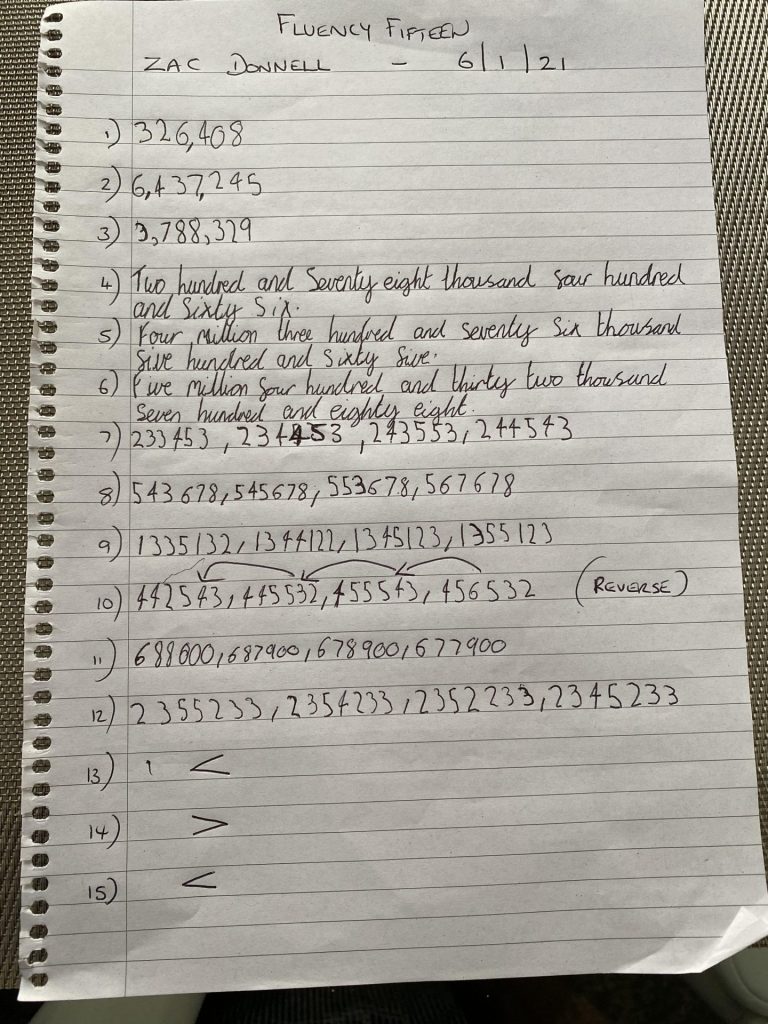 FLUENCY FIFTEEN
ZAC DONNELL - 6/1/21
1) 326,408
2) 6,437,245
3) 3,788,329
4) Two hundred and Seventy eight thousand four hundred
and Sixty Six.
5) Four million three hundred and seventy Six thousand
five hundred and Sixty five.
6) Five million four hundred and thirty two thousand
Seven hundred and eighty eight.
7) 233453, 234453, 243553, 244543
8) 543678, 545678, 553678, 567678
9) 1335132, 1344122, 1345123, 1355123
10) 442543, 445532, 455543, 456532 (REVERSE)
11) 688600, 687900, 678900, 677900
12) 2355233, 2354233, 2352233, 2345233
13) <
14) >
15) <